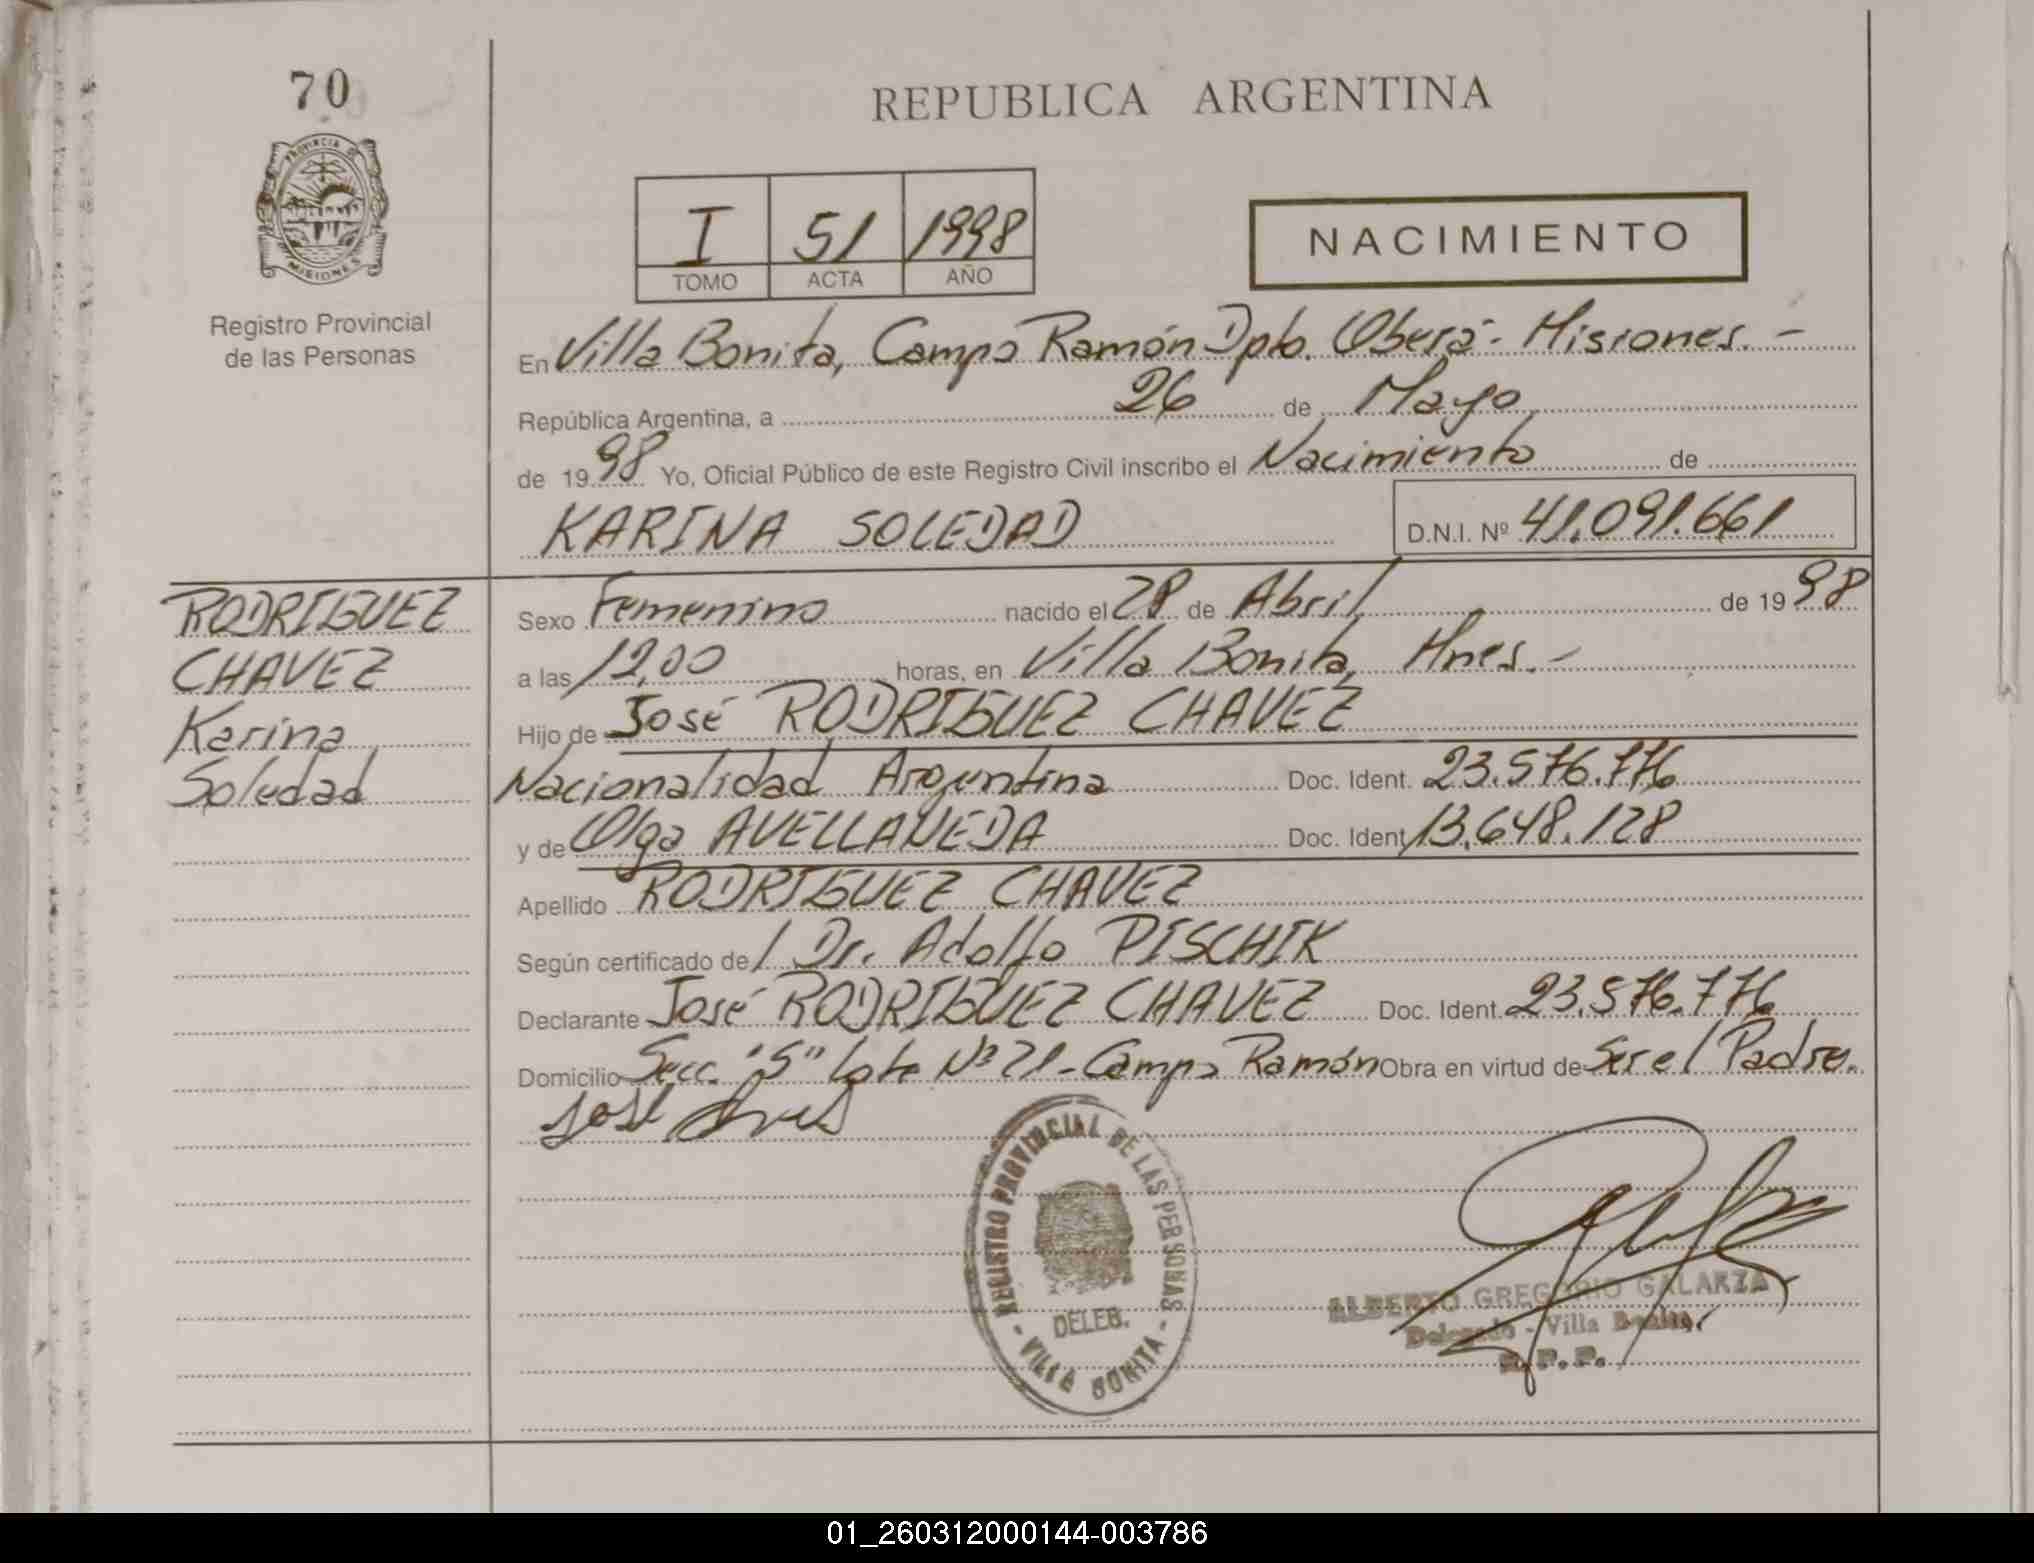 70
REPUBLICA ARGENTINA
PROVINCIA DE
MISIONES
I 51 1998
TOMO ACTA AÑO
NACIMIENTO
Registro Provincial
de las Personas
En Villa Bonita, Campo Ramón Dpto. Oberá - Misiones. -
República Argentina, a 26 de Mayo
de 1998 Yo, Oficial Público de este Registro Civil inscribo el Nacimiento de
KARINA SOLEDAD D.N.I. Nº 41.091.661
RODRIGUEZ
CHAVEZ
Karina
Soledad
Sexo Femenino nacido el 28 de Abril de 1998
a las 12,00 horas, en Villa Bonita, Mnes. -
Hijo de José RODRIGUEZ CHAVEZ
Nacionalidad Argentina Doc. Ident. 23.576.776
y de Olga AVELLANEDA Doc. Ident. 13.648.128
Apellido RODRIGUEZ CHAVEZ
Según certificado del Dr. Adolfo PISCHIK
Declarante José RODRIGUEZ CHAVEZ Doc. Ident. 23.576.776
Domicilio Secc. "S" Lote Nº 21 - Campo Ramón Obra en virtud de Ser el Padre.
José
REGISTRO PROVINCIAL DE LAS PERSONAS
DELEG.
- VILLA BONITA -
ALBERTO GREGORIO GALARZA
Delegado - Villa Bonita
R.P.P.
01_260312000144-003786